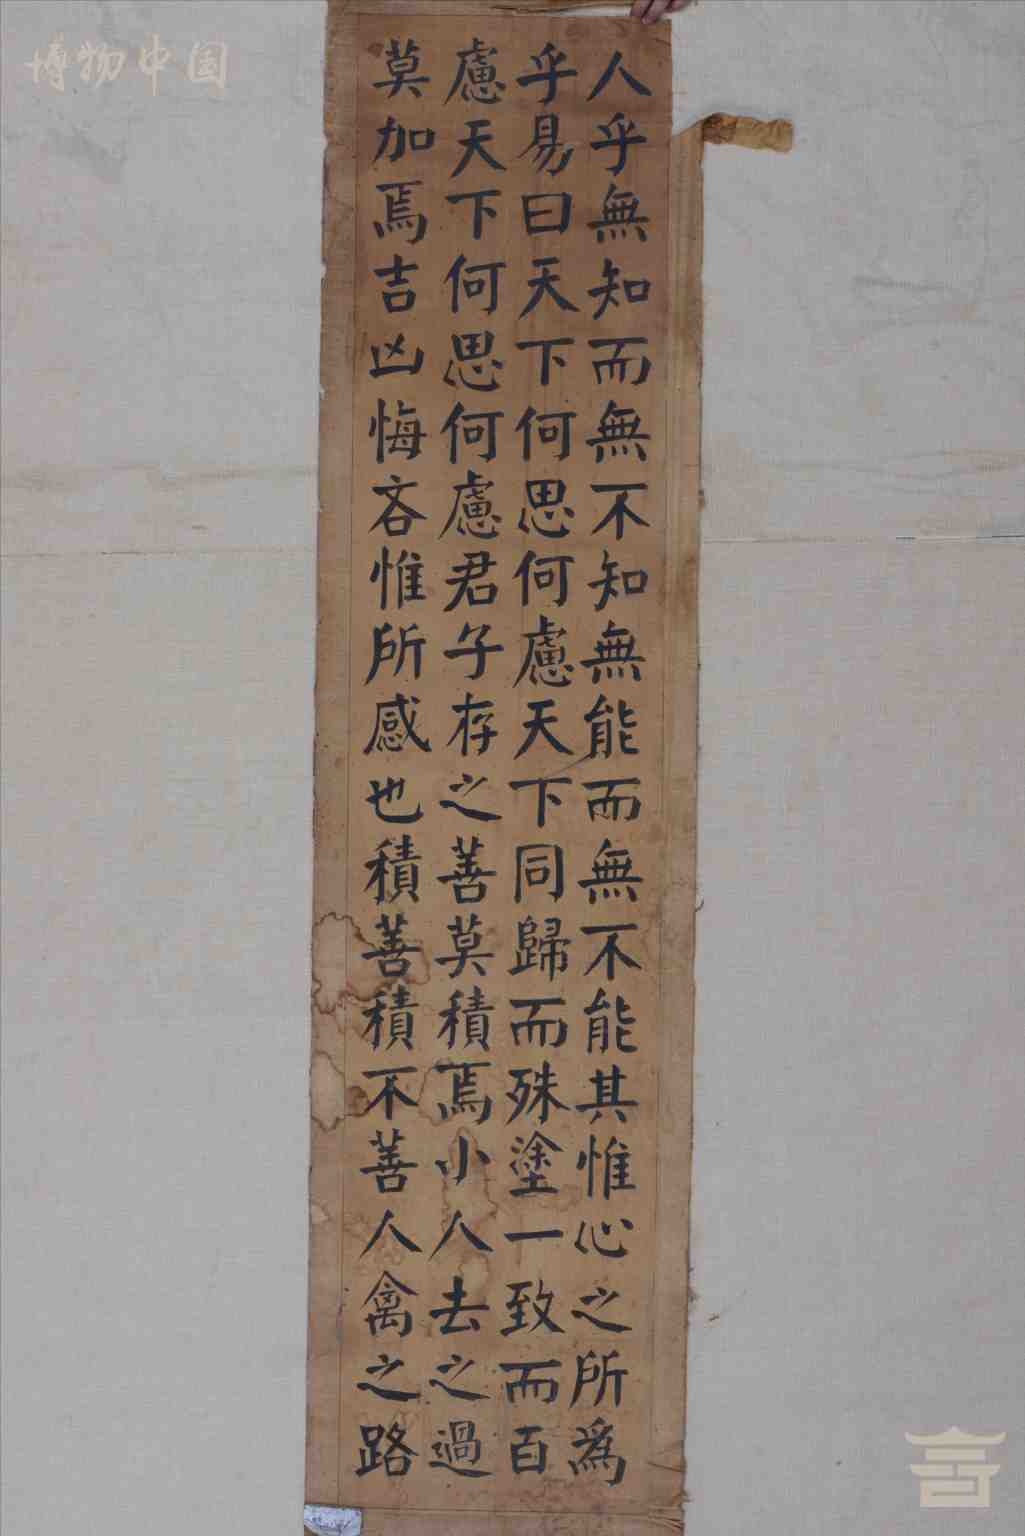 人乎無知而無不知無能而無不能其惟心之所為
乎易曰天下何思何慮天下同歸而殊塗一致而百
慮天下何思何慮君子存之善莫積焉小人去之過
莫加焉吉凶悔吝惟所感也積善積不善人禽之路
博物中国